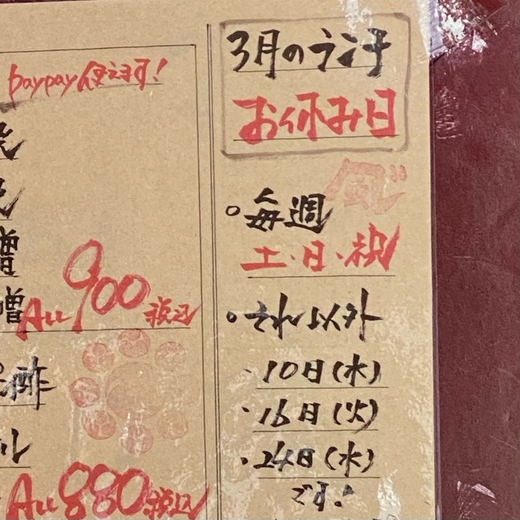 paypay使えます!
増
増
All 900 税込
酢
ル
All 880 税込
3月のランチ
お休み日
。毎週
土・日・祝
・それ以外
・10日(水)
・16日(火)
・24日(水)
です。